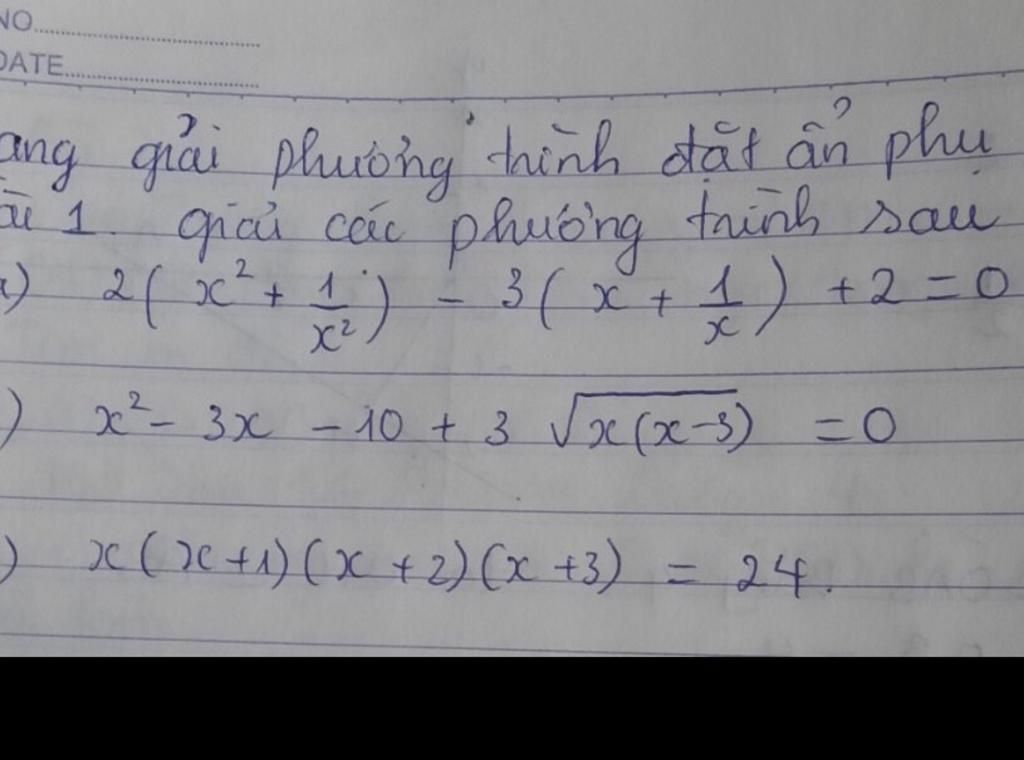 NO
DATE
ang giải phương trình đặt ẩn phụ
1. giải các phương trình sau
) 2(x² + 1/x²) - 3(x + 1/x) + 2 = 0
) x² - 3x - 10 + 3 √x(x-3) = 0
) x(x+1)(x+2)(x+3) = 24.